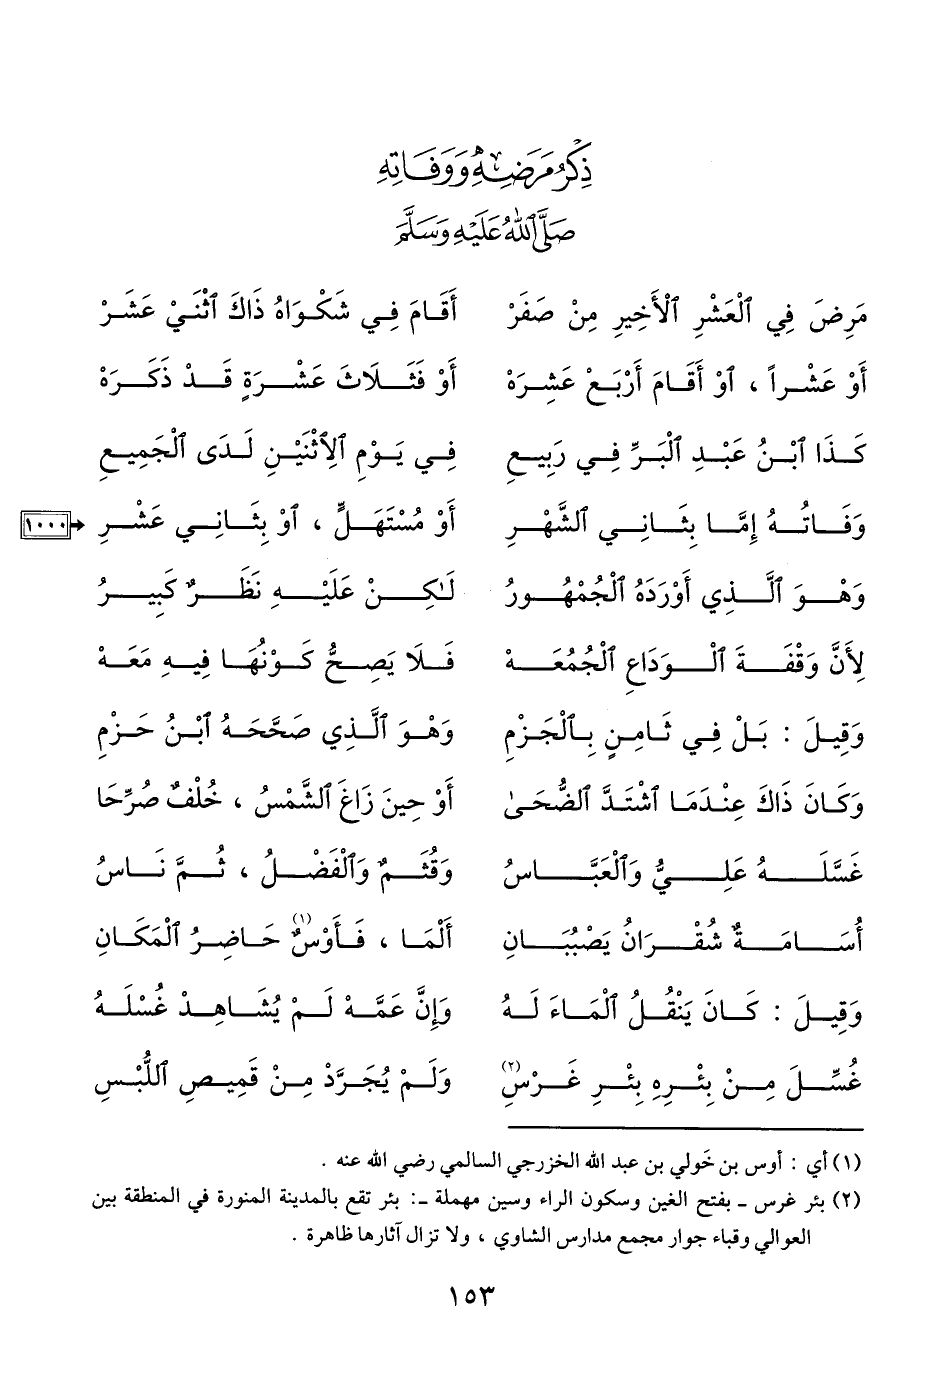 ذِكْرُ مَرَضِهِ وَوَفَاتِهِ
صَلَّى ٱللهُ عَلَيْهِ وَسَلَّمَ
مَرِضَ فِي ٱلْعَشْرِ ٱلْأَخِيرِ مِنْ صَفَرْ أَقَامَ فِي شَكْوَاهُ ذَاكَ ٱثْنَيْ عَشَرْ
أَوْ عَشْراً ، ٱوْ أَقَامَ أَرْبَعْ عَشِرَهْ أَوْ فَثَلَاثَ عَشْرَةٍ قَدْ ذَكَرَهْ
كَذَا ٱبْنُ عَبْدِ ٱلْبَرِّ فِي رَبِيعِ فِي يَوْمِ ٱلِٱثْنَيْنِ لَدَى ٱلْجَمِيعِ
وَفَاتُهُ إِمَّا بِثَانِي ٱلشَّهْرِ أَوْ مُسْتَهَلٍّ ، ٱوْ بِثَانِي عَشْرِ ١٠٠٠
وَهْوَ ٱلَّذِي أَوْرَدَهُ ٱلْجُمْهُورُ لَٰكِنْ عَلَيْهِ نَظَرٌ كَبِيرُ
لِأَنَّ وَقْفَةَ ٱلْوَدَاعِ ٱلْجُمُعَهْ فَلَا يَصِحُّ كَوْنُهَا فِيهِ مَعَهْ
وَقِيلَ : بَلْ فِي ثَامِنٍ بِٱلْجَزْمِ وَهْوَ ٱلَّذِي صَحَّحَهُ ٱبْنُ حَزْمِ
وَكَانَ ذَاكَ عِنْدَمَا ٱشْتَدَّ ٱلضُّحَىٰ أَوْ حِينَ زَاغَ ٱلشَّمْسُ ، خُلْفٌ صُرِّحَا
غَسَّلَهُ عَلِيُّ وَٱلْعَبَّاسُ وَقُثَمٌ وَٱلْفَضْلُ ، ثُمَّ نَاسُ
أُسَامَةٌ شُقْرَانُ يَصْبُبَانِ ٱلْمَا ، فَأَوْسٌ(١) حَاضِرُ ٱلْمَكَانِ
وَقِيلَ : كَانَ يَنْقُلُ ٱلْمَاءَ لَهُ وَإِنَّ عَمَّهْ لَمْ يُشَاهِدْ غُسْلَهُ
غُسِّلَ مِنْ بِئْرِهِ بِئْرِ غَرْسِ(٢) وَلَمْ يُجَرَّدْ مِنْ قَمِيصِ ٱللُّبْسِ
(١) أي : أوس بن خَولي بن عبد الله الخزرجي السالمي رضي الله عنه .
(٢) بئر غرس ـ بفتح الغين وسكون الراء وسين مهملة ـ: بئر تقع بالمدينة المنورة في المنطقة بين
العوالي وقباء جوار مجمع مدارس الشاوي ، ولا تزال آثارها ظاهرة .
١٥٣